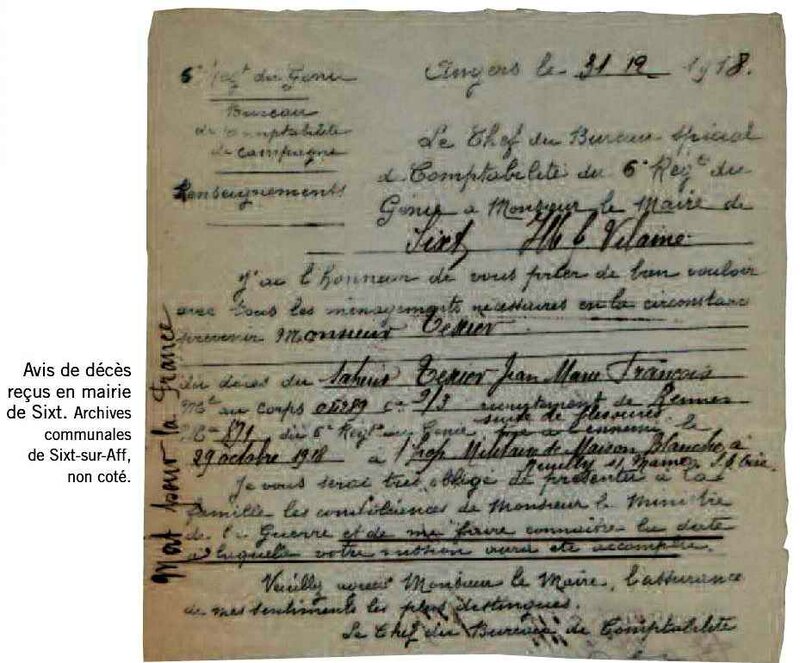 Avis de décès
reçus en mairie
de Sixt. Archives
communales
de Sixt-sur-Aff,
non coté.
6e Regt du Génie
Bureau
de Comptabilité
de Campagne
Renseignements
Angers le 31 12 1918.
Le Chef du Bureau spécial
de Comptabilité du 6e Regt du
Génie à Monsieur le Maire de
Sixt Ille & Vilaine
J'ai l'honneur de vous prier de bien vouloir
avec tous les ménagements nécessaires en la circonstance
prévenir Monsieur Texier
du décès du Sapeur Texier Jean Marie François
Mle au corps Cie 9/3 recrutement de Rennes
Mle 871 du 6e Regt du Génie suite de blessures
29 octobre 1918 à l'hop Militaire de Maison Blanche à
Neuilly s/ Marne S. & Oise
Je vous serai très obligé de présenter à la
famille les condoléances de Monsieur le Ministre
de la Guerre et de me faire connaître la date
à laquelle votre mission aura été accomplie.
Veuillez agréer Monsieur le Maire, l'assurance
de mes sentiments les plus distingués.
Le Chef du Bureau de Comptabilité
Mort pour la France